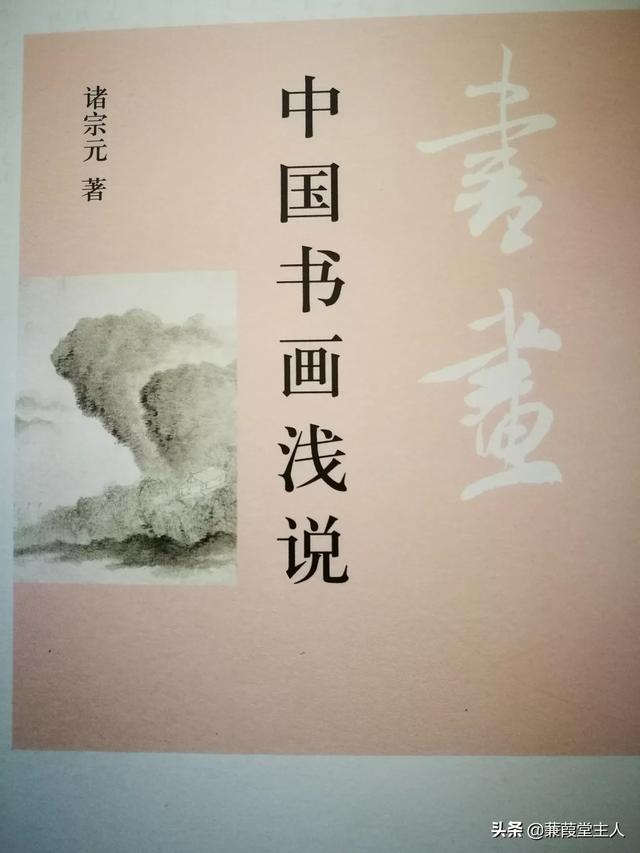 書畫
中国书画浅说
诸宗元 著
头条 @蒹葭堂主人